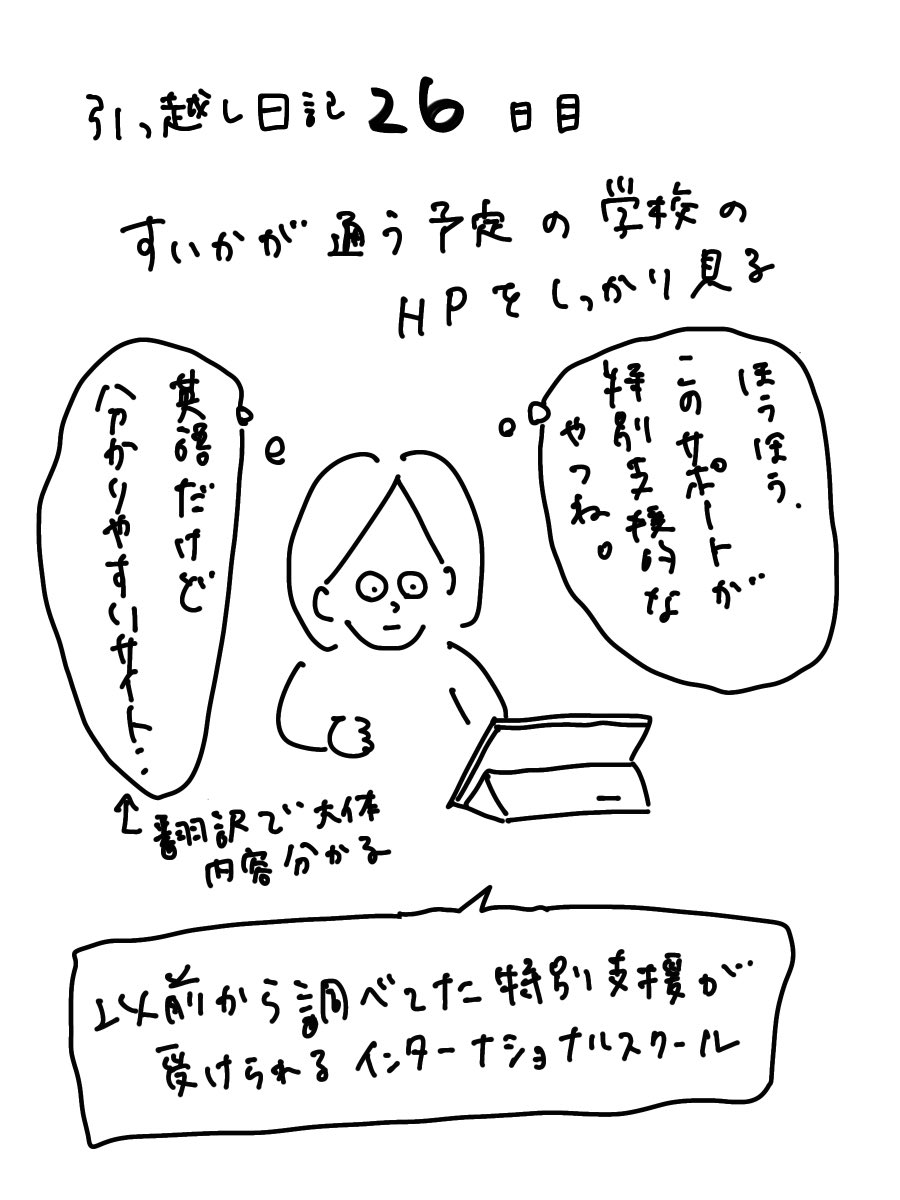 引っ越し日記26日目
すいかが通う予定の学校の
HPをしっかり見る
ほうほう、
このサポートが
特別支援的な
やつね。
英語だけど
分かりやすいサイト…
↑翻訳で大体
内容分かる
以前から調べてた特別支援が
受けられるインターナショナルスクール